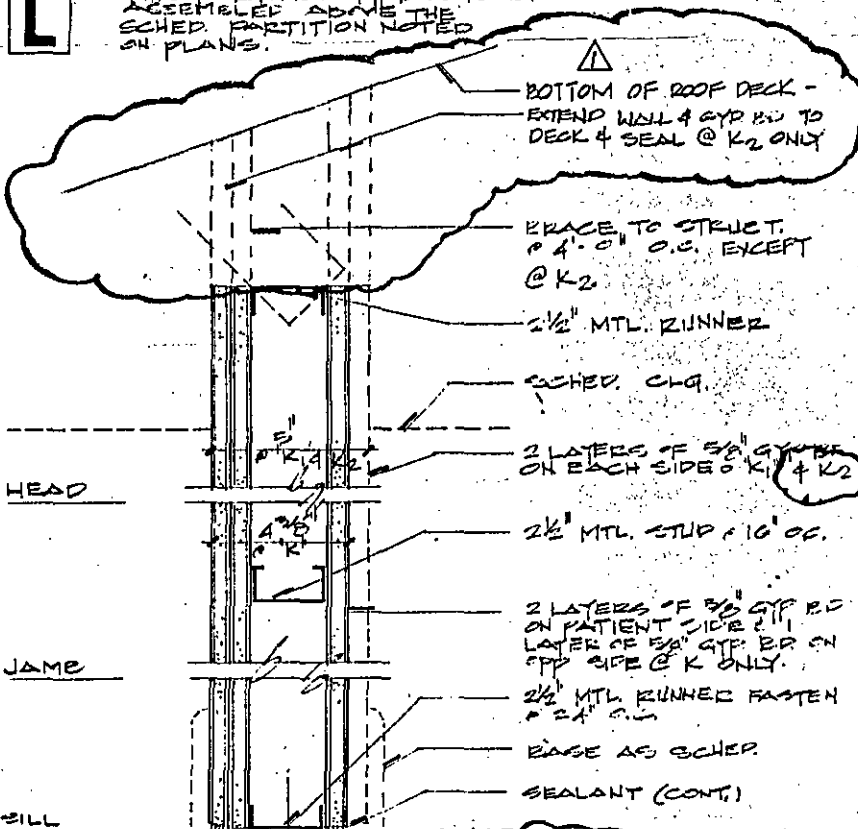 L
ASSEMBLED ABOVE THE
SCHED. PARTITION NOTED
ON PLANS.
1
BOTTOM OF ROOF DECK -
EXTEND WALL & GYP BD TO
DECK & SEAL @ K2 ONLY
BRACE TO STRUCT.
@ 4'-0" O.C. EXCEPT
@ K2
2 1/2" MTL. RUNNER
SCHED. CLG.
5"
@ K1 & K2
2 LAYERS OF 5/8" GYP BD
ON EACH SIDE @ K1 & K2
HEAD
4 3/8"
@ K
2 1/2" MTL. STUD @ 16" OC.
2 LAYERS OF 5/8" GYP BD
ON PATIENT SIDE & 1
LAYER OF 5/8" GYP. BD. ON
OPP SIDE @ K ONLY.
JAMB
2 1/2" MTL. RUNNER FASTEN
@ 24" O.C.
BASE AS SCHED.
SEALANT (CONT.)
SILL